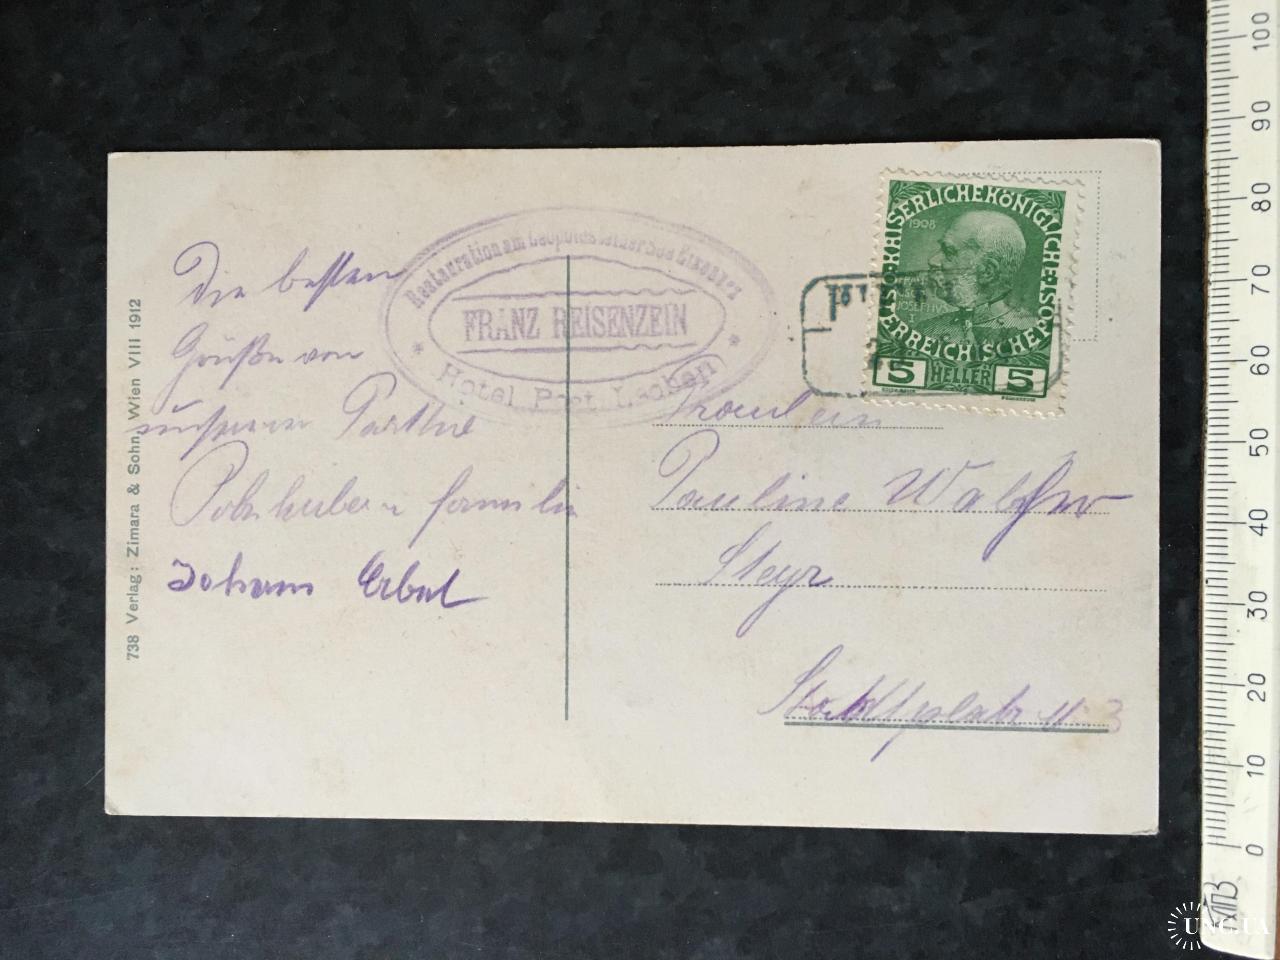 Die besten
Grüße von
unserer Parthie
familie
Johann
738 Verlag: Zimara & Sohn, Wien VIII 1912
Restauration am Leopoldsteiner See Eisenerz
FRANZ REISENZEIN
* Hotel Post Leoben *
KAISERLICHE KÖNIGLICHE ÖSTERREICHISCHE POST
1908
5 HELLER 5
Fräulein
Pauline
Steyr
3
100
90
80
70
60
50
40
30
20
10
0
UNC.UA